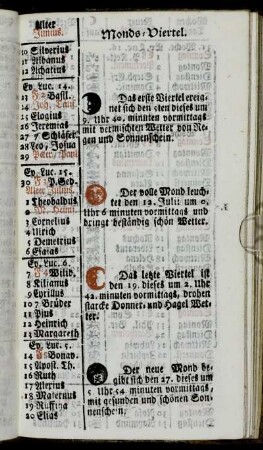 Alter
Junius.
Monds-Viertel.
10 Silverius
11 Albanus
12 Achatius
Ev. Luc. 14.
13 F Basil.
14 Joh. Tauf.
15 Elogius
16 Jeremias
27 7 Schläfer
28 Leo, Josua
29
Ev. Luc. 15.
30 F
Alter Julius.
2 Theobaldus
3 Cornelius
4 Ulrich
5 Demetrius
6 Esaias
Ev. Luc. 6.
7 F Wilib.
8 Kilianus
9 Cyrillus
10 7 Brüder
11 Pius
12 Heinrich
13 Margareth
Ev. Luc. 5.
14 F Bonav.
15 Apost. Th.
16 Ruth
17 Alexius
18 Maternus
19 Ruffina
20 Elias
Das erste Viertel ereig
net sich den 5ten dieses um
9. Uhr 40. minuten vormittags
mit vermischten Wetter von Re
gen und Sonnenschein.
Der volle Mond leuch
tet den 12. Julii um 0.
Uhr 6 minuten vormittags und
bringt beständig schön Wetter.
Das letzte Viertel ist
den 19. dieses um 2. Uhr
42. minuten vormittags, drohet
starcke Donner- und Hagel Wet
ter.
Der neue Mond be
gibt sich den 27. dieses um
5 Uhr 54 minuten vormittags,
mit gesunden und schönen Son
nenschein.